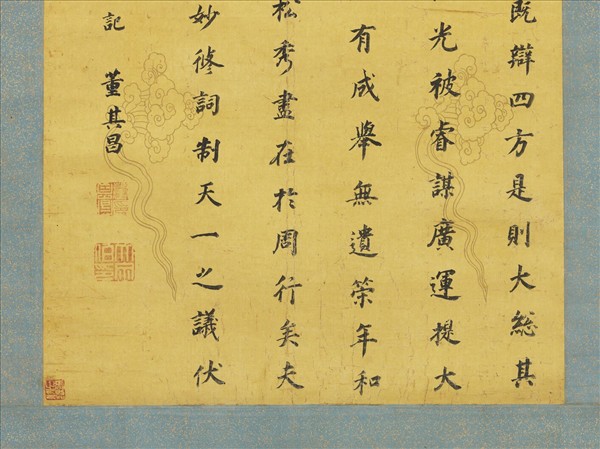 既辯四方是則大總其
光被睿謀廣運提大
有成舉無遺榮年和
松秀盡在於周行矣夫
妙修詞制天一之議伏
記
董其昌